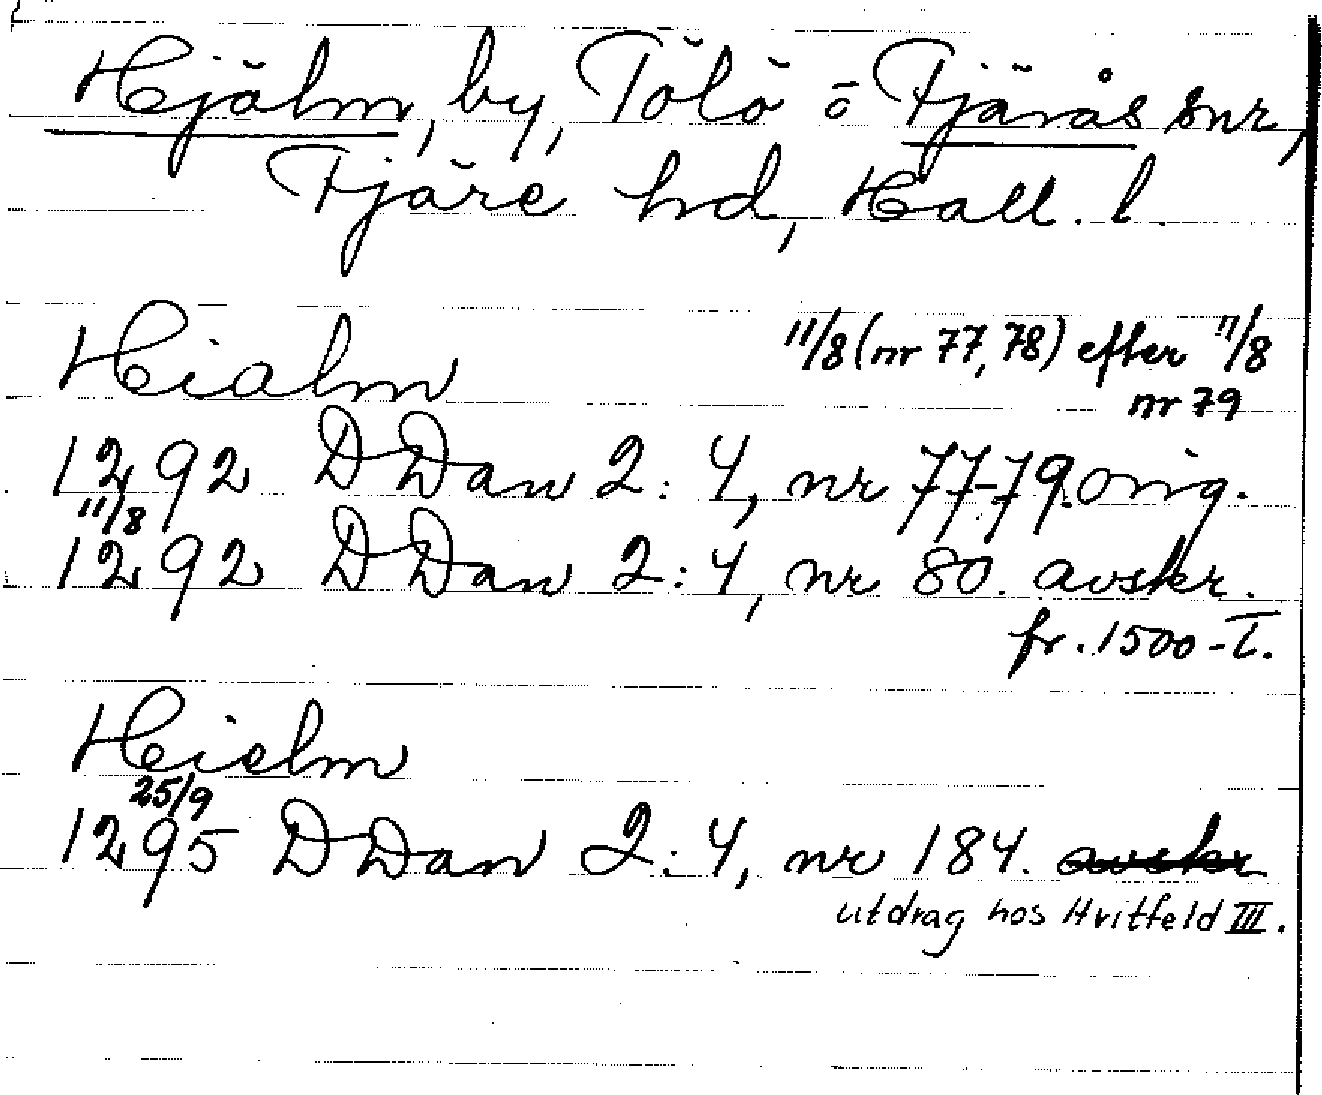 Hjälm, by, Tölö o Fjärås snr,
Fjäre hd, Hall. l.
Hialm
11/8 (nr 77, 78) efter 11/8
nr 79
1292 DDan 2:4, nr 77-79. orig.
11/8
1292 DDan 2:4, nr 80. avskr.
fr. 1500-t.
Hielm
25/9
1295 DDan 2:4, nr 184. avskr
utdrag hos Hvitfeld III.